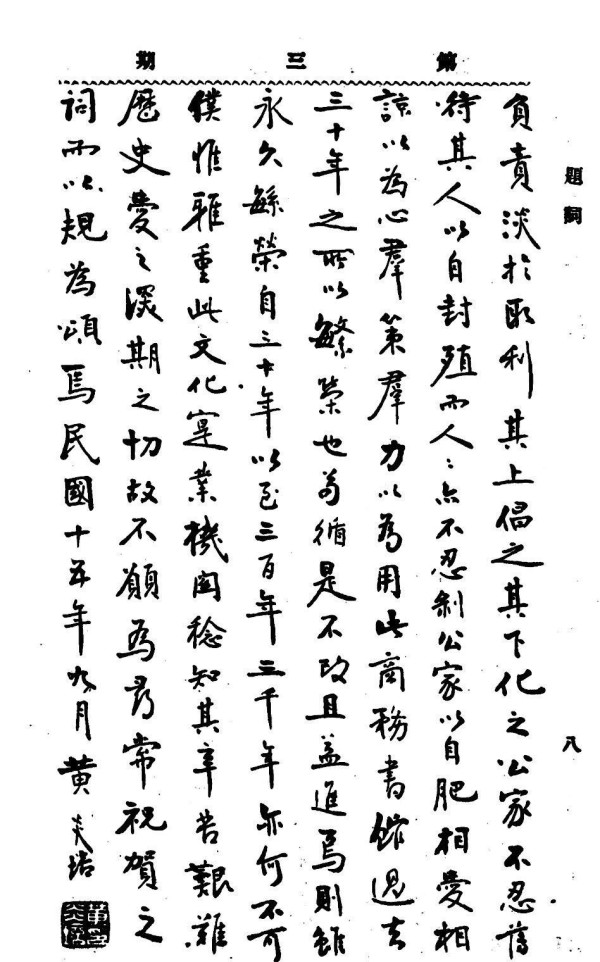 第三期
題詞
八
負責淡於取利其上倡之其下化之公家不忍薄
待其人以自封殖而人〻亦不忍剝公家以自肥相愛相
諒以為心羣策羣力以為用此商務書館過去
三十年之所以繁榮也苟循是不改且益進焉則雖
永久繇榮自三十年以至三百年三千年亦何不可
僕惟雅重此文化寔業機関稔知其辛苦艱難
歷史愛之深期之切故不願為尋常祝賀之
詞而以規為頌焉民國十五年九月黃炎培